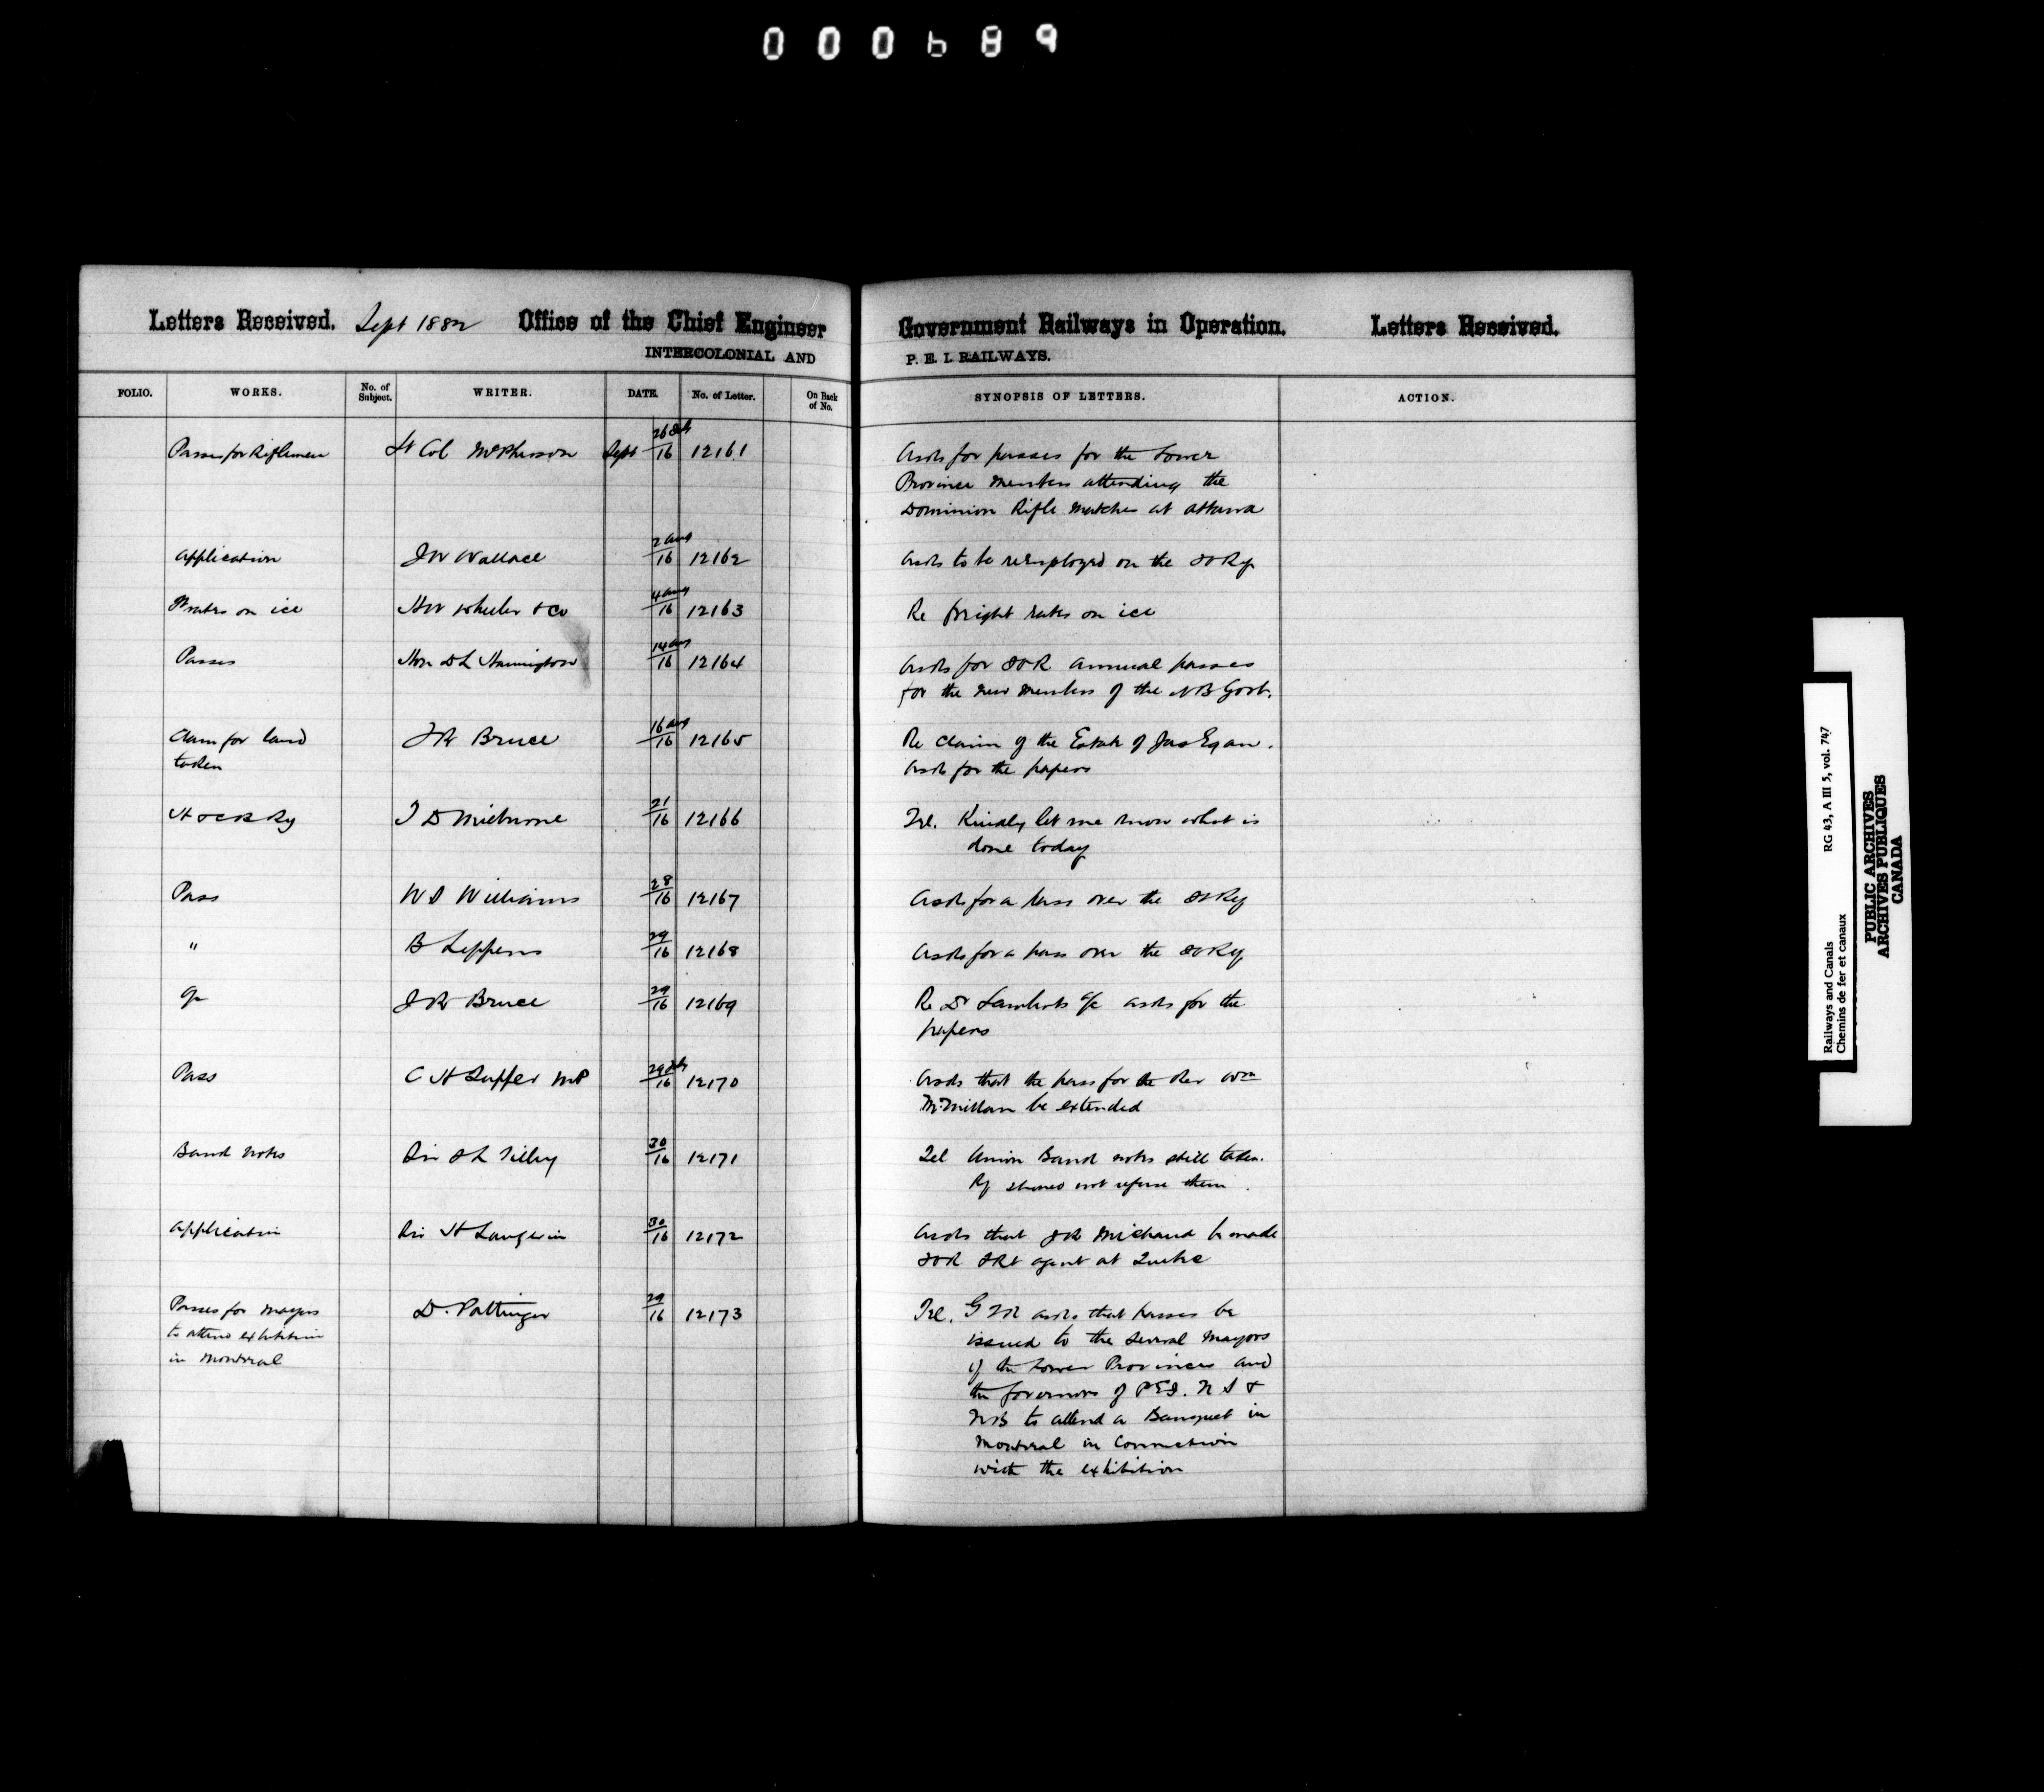 000689
Letters Received. Sept 1882 Office of the Chief Engineer Government Railways in Operation. Letters Received.
INTERCOLONIAL AND P. E. I. RAILWAYS.
FOLIO. WORKS. No. of Subject. WRITER. DATE. No. of Letter. On Back of No. SYNOPSIS OF LETTERS. ACTION.
Passes for Riflemen Lt Col McPherson Sept 26 /16 12161 Asks for passes for the Lower
Province members attending the
Dominion Rifle Matches at Ottawa
Application J W Wallace 2 Aug/16 12162 Asks to be reemployed on the ICRy
rates on ice H W Wheeler & Co 4 Aug/16 12163 Re freight rates on ice
Passes Hon D L Hanington 14 Aug/16 12164 Asks for ICR annual passes
for the new members of the NB Govt.
Claim for land J R Bruce 16 Aug/16 12165 Re claim of the Estate of Jas Egan.
taken Asks for the papers
H & C B Ry D 21/16 12166 Tel. Kindly let me know what is
done today
Pass W D Williams 28/16 12167 Asks for a pass over the ICRy
" B Leppens 29/16 12168 Asks for a pass over the ICRy
J R Bruce 29/16 12169 Re Dr Lamberts a/c asks for the
papers
Pass C H Tupper MP 29 /16 12170 Asks that the pass for the Rev Wm
McMillan be extended
Bank notes Sir S L Tilley 30/16 12171 Tel Union Bank notes still taken.
Ry should not refuse them.
Application Sir H Langevin 30/16 12172 Asks that J R Michaud be made
ICR Frt agent at Quebec
Passes for Mayors D. Pottinger 29/16 12173 Tel. GTR asks that passes be
to attend exhibition issued to the several Mayors
in Montreal of the Lower Provinces and
the Governors of PEI. NS &
NB to attend a Banquet in
Montreal in Connection
with the exhibition
Railways and Canals RG 43, A III 5, vol. 747
Chemins de fer et canaux
PUBLIC ARCHIVES
ARCHIVES PUBLIQUES
CANADA